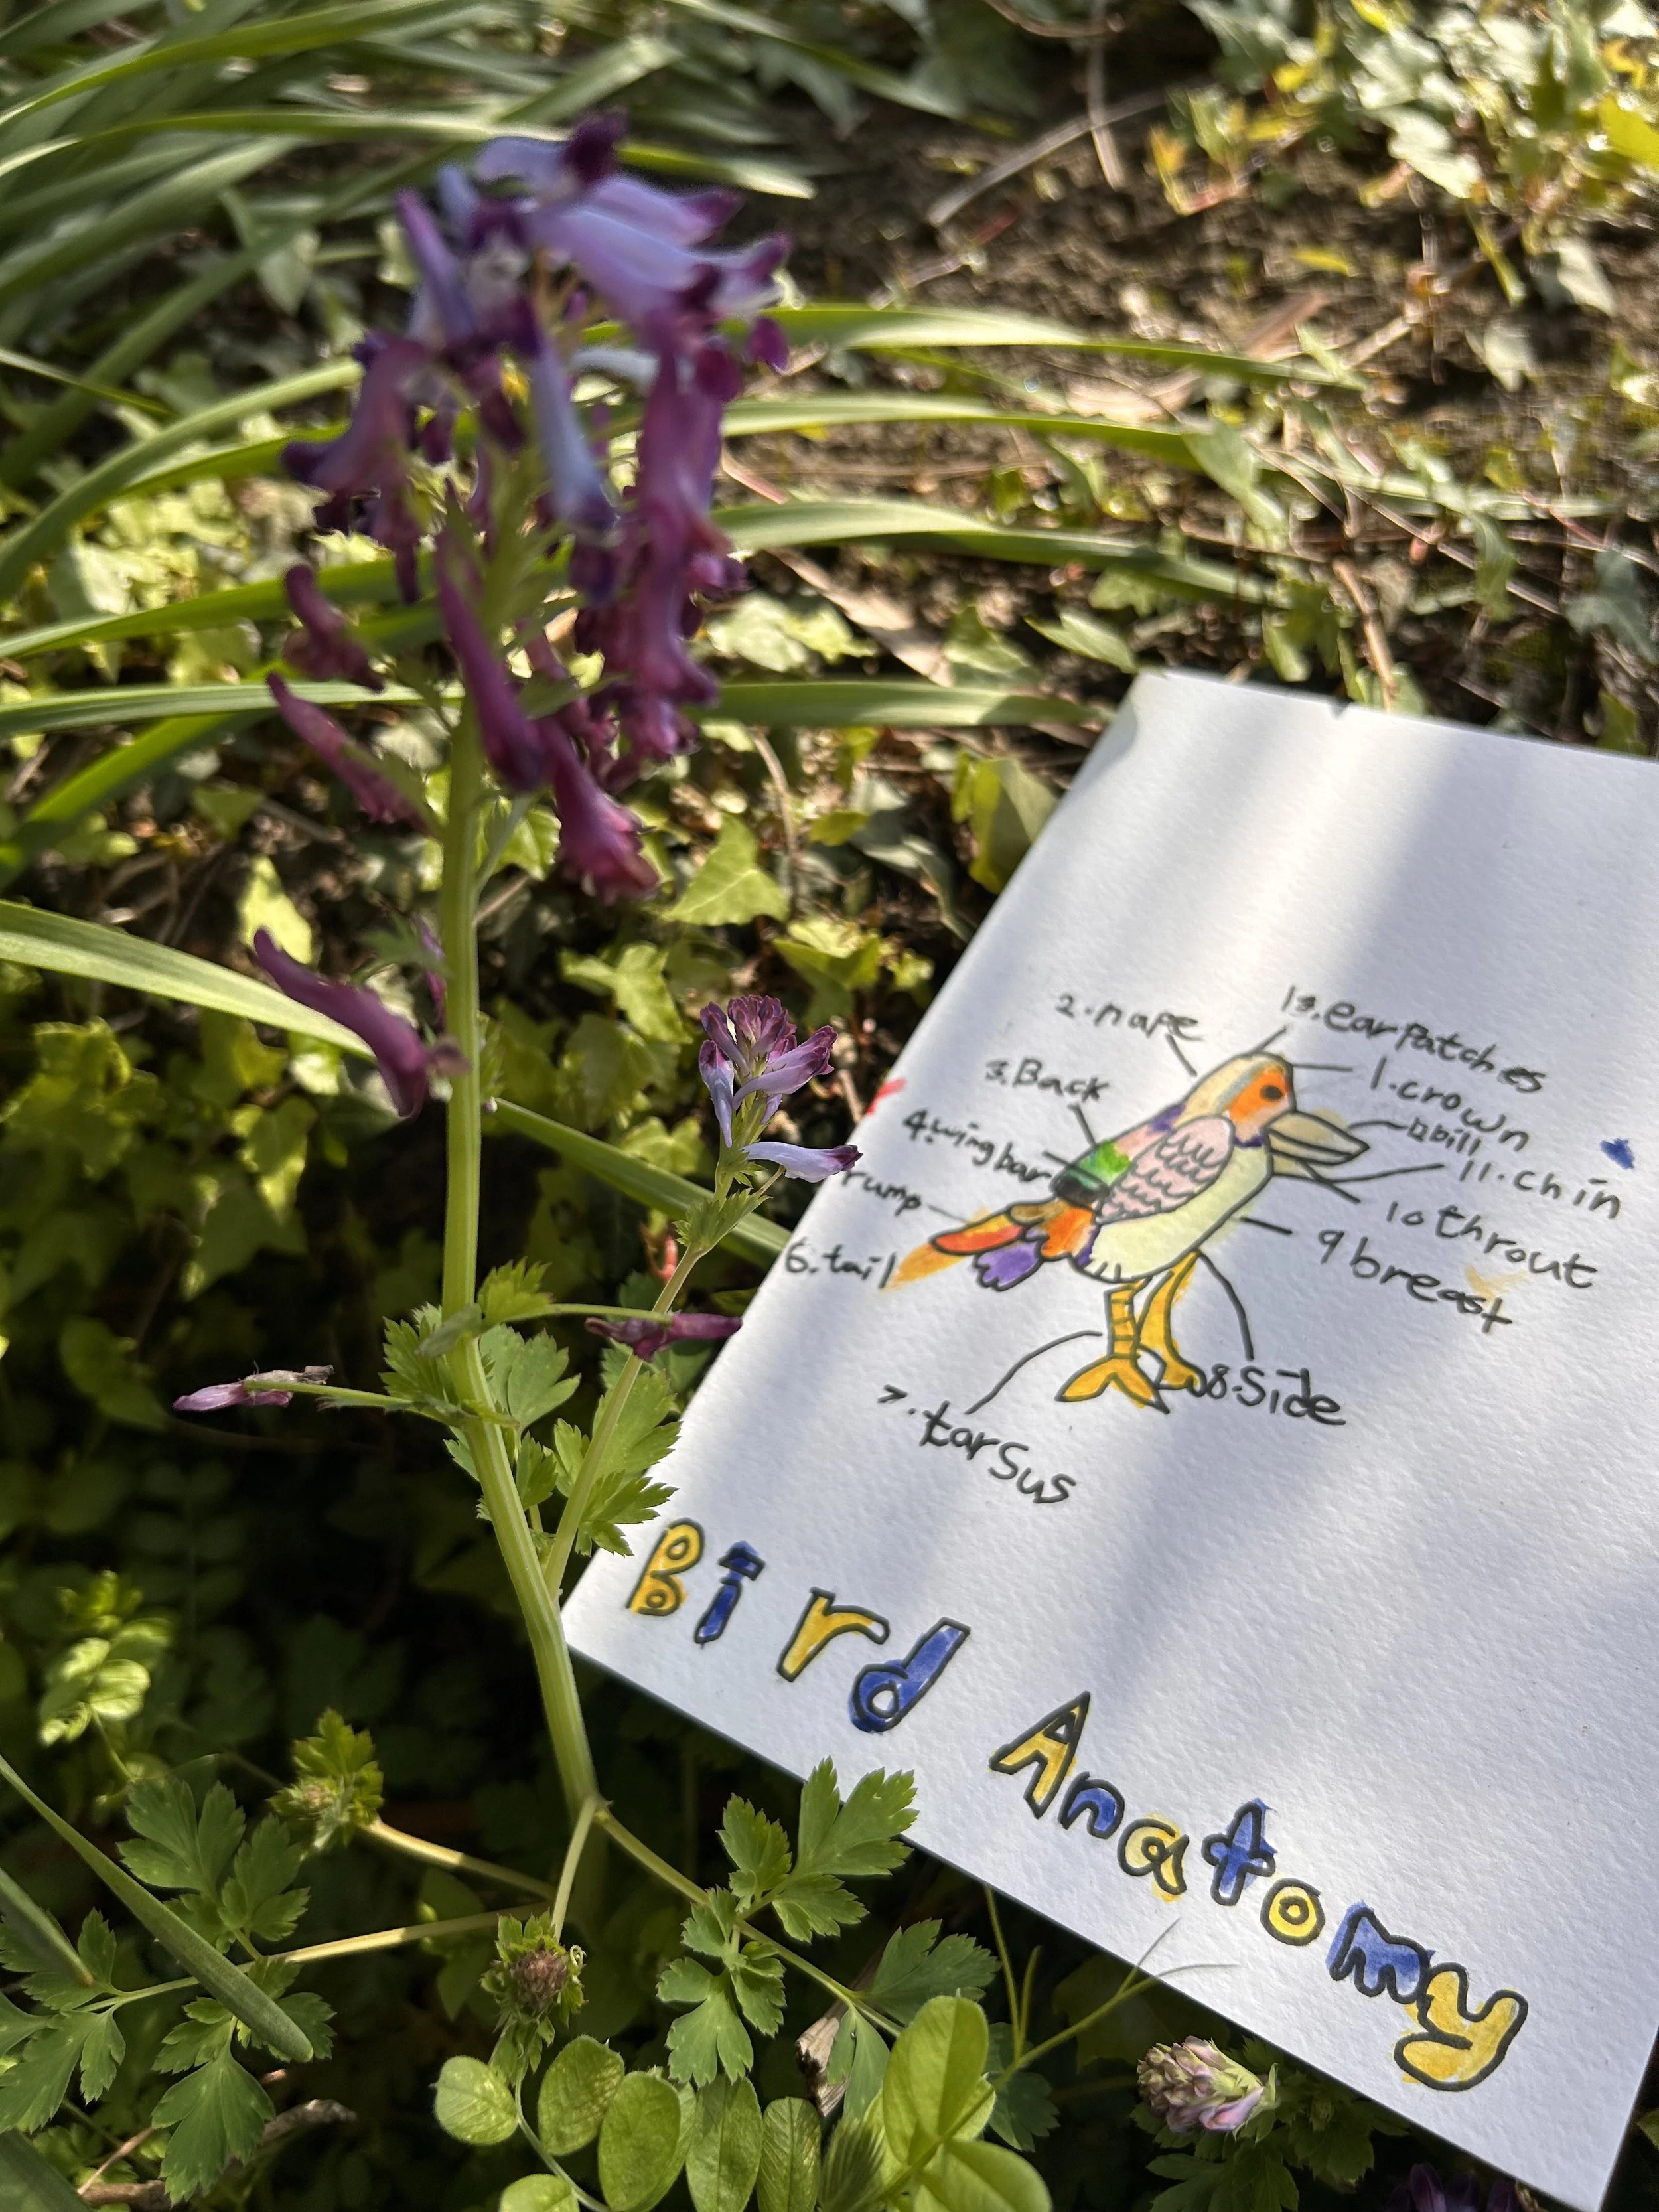 2.nape
13.ear patches
3.Back
1.crown
4.wing bar
12bill
11.chin
rump
10throut
6.tail
9breast
8.Side
7.tarsus
Bird Anatomy